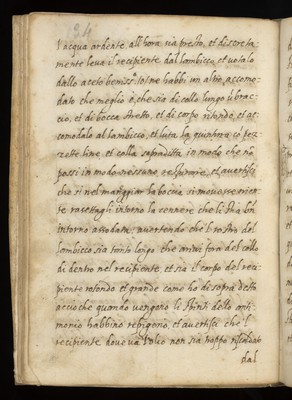 l'acqua ardente all'hora sia presto, et discreta-
mente leva il recipiente dal lambicco, et votalo
dallo aceto beniss.º et ne habbi un altro, accomo-
dato che meglio è, che sia di collo lungo
et di bocca stretto, et di corpo rotondo, et ac-
comodalo al lambicco, et luta la giuntura cõ pez-
zette line, et colla sopraditta in modo che nõ
possi in modo nessuno respirare, et avertisci
che si nel maneggiar la boccia si movesse
te rasettagli intorno la cennere che li stia
intorno assodam. avertendo che'l rostro del
lambicco sia tanto longo che arrivi fora del collo
di dentro nel recipiente, et sia il corpo del reci-
piente rotondo et grande como ho di sopra detto
accioche quando vengono li spiriti dello anti-
monio habbino refrigerio, et avertisci che'l
recipiente dove va l'olio non sia troppo riscaldato
dal